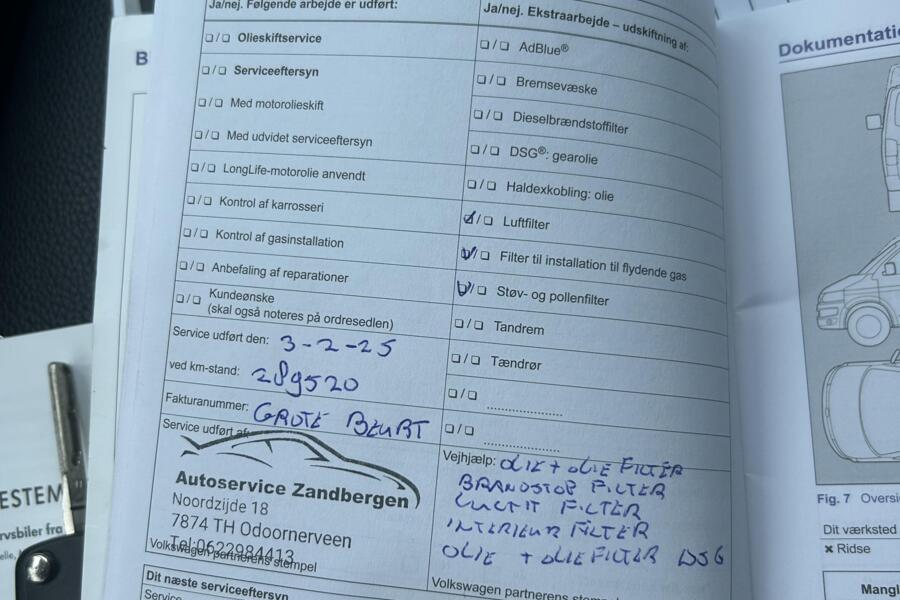 Ja/nej. Følgende arbejde er udført:
❏/❏ Olieskiftservice
❏/❏ Serviceeftersyn
❏/❏ Med motorolieskift
❏/❏ Med udvidet serviceeftersyn
❏/❏ LongLife-motorolie anvendt
❏/❏ Kontrol af karrosseri
❏/❏ Kontrol af gasinstallation
❏/❏ Anbefaling af reparationer
❏/❏ Kundeønske
(skal også noteres på ordresedlen)
Service udført den: 3-2-25
ved km-stand: 289520
Fakturanummer: GROTE BEURT
Service udført af:
Autoservice Zandbergen
Noordzijde 18
7874 TH Odoornerveen
Tel: 0622984413
Volkswagen partnerens stempel
Dit næste serviceeftersyn
Service
Ja/nej. Ekstraarbejde – udskiftning af:
❏/❏ AdBlue®
❏/❏ Bremsevæske
❏/❏ Dieselbrændstoffilter
❏/❏ DSG®: gearolie
❏/❏ Haldexkobling: olie
☑/❏ Luftfilter
☑/❏ Filter til installation til flydende gas
☑/❏ Støv- og pollenfilter
❏/❏ Tandrem
❏/❏ Tændrør
❏/❏ ....................
❏/❏ ....................
Vejhjælp: OLIE + OLIE FILTER
BRANDSTOF FILTER
LUCHT FILTER
INTERIEUR FILTER
OLIE + OLIEFILTER DSG
Volkswagen partnerens
Dokumentati
Fig. 7 Oversi
Dit værksted
× Ridse
Mangl
ESTEM
rvsbiler fra